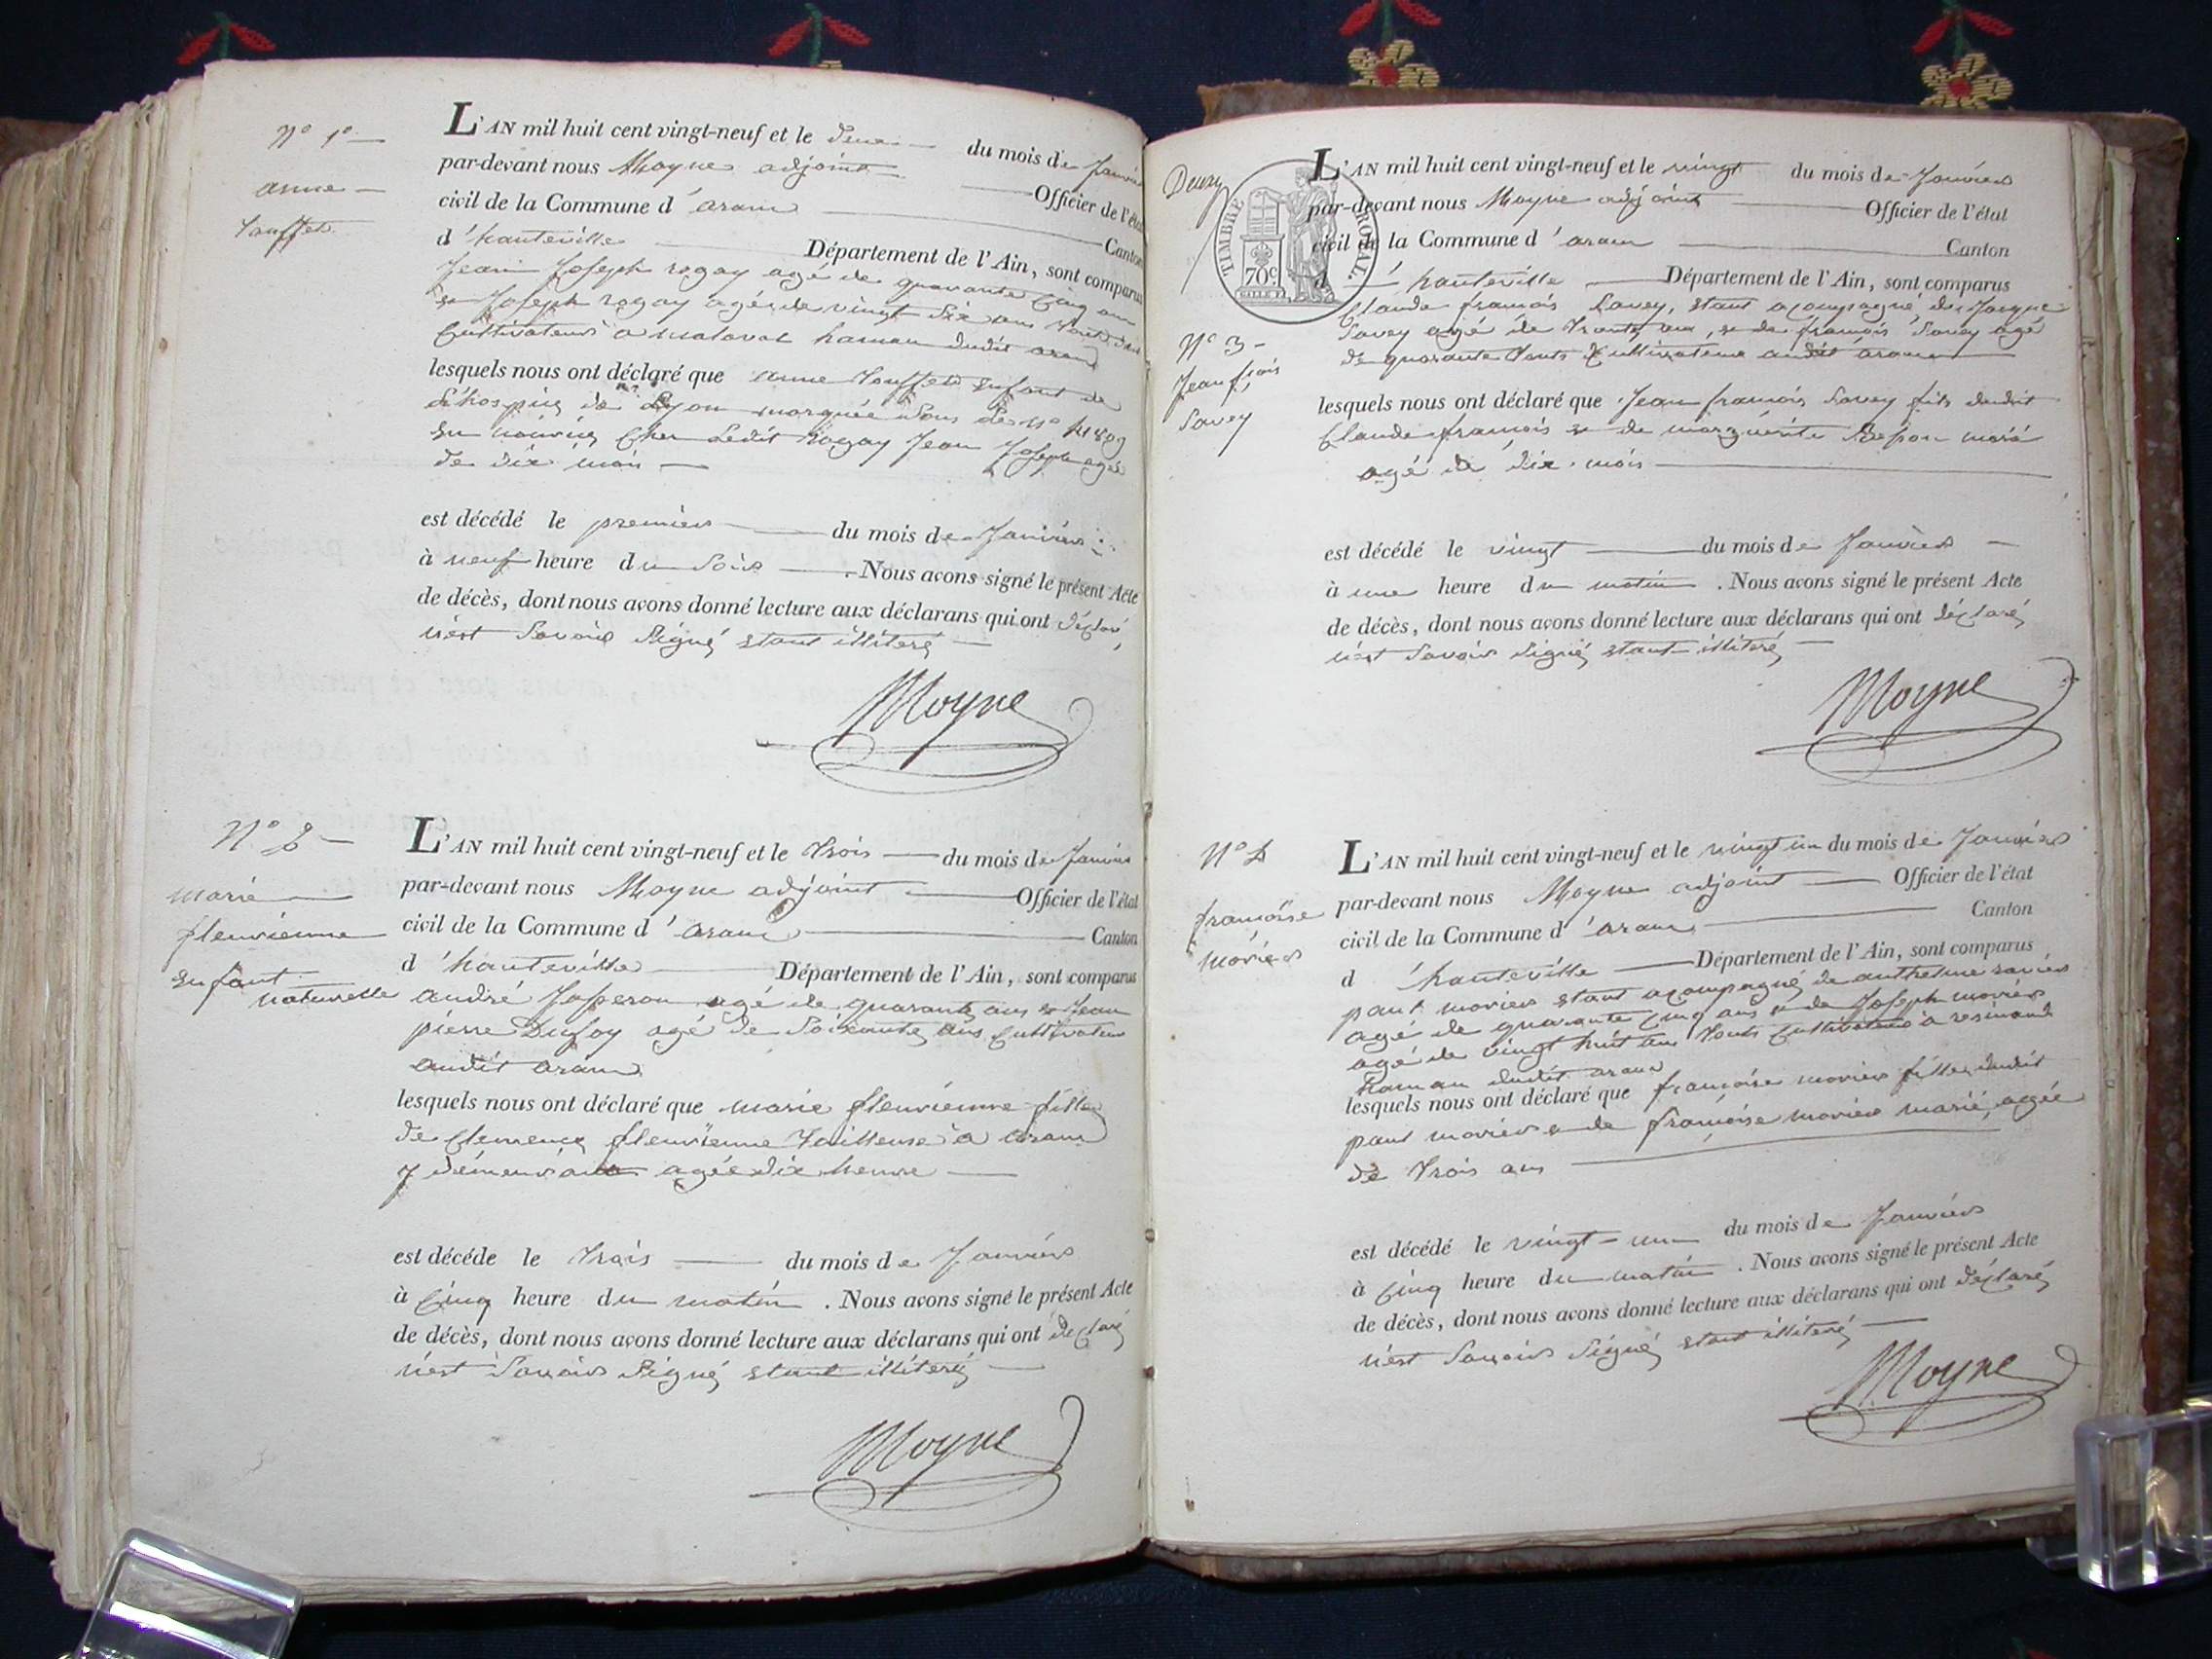 N° 1er
anne
L'AN mil huit cent vingt-neuf et le deux du mois de Janvier
par-devant nous Moyne adjoint Officier de l'état
civil de la Commune d'aranc Canton
d'hauteville Département de l'Ain, sont comparus
Jean Joseph rogay agé de quarante cinq ans
& Joseph rogay agé de vingt dix ans tous deux
Cultivateurs a malaval hamau dudit aranc
lesquels nous ont déclaré que anne enfant de
l'hospice de Lyon marquée sous le n°
en nourice Cher Ledit Rogay Jean Joseph agée
de dix mois
est décédé le premier du mois de Janvier
à neuf heure du soir. Nous avons signé le présent Acte
de décès, dont nous avons donné lecture aux déclarans qui ont déclaré
n'est savoir signé etant illiteré
Moyne
N° 2
marie
fleurienne
enfant
naturelle
L'AN mil huit cent vingt-neuf et le trois du mois de Janvier
par-devant nous Moyne adjoint Officier de l'état
civil de la Commune d'aranc Canton
d'hauteville Département de l'Ain, sont comparus
andré Josperon agé de quarante ans & Jean
pierre Dufoy agé de soixante ans Cultivateur
audit aranc
lesquels nous ont déclaré que marie fleurienne fille
de Clemence fleurienne tailleuse a aranc
y démeurant agée dix heure
est décéde le trois du mois de Janvier
à Cinq heure du matin. Nous avons signé le présent Acte
de décès, dont nous avons donné lecture aux déclarans qui ont déclaré
n'est savoir signé etant illiteré
Moyne
TIMBRE ROYAL.
70c.
N° 3
Jean fçois
Savey
L'AN mil huit cent vingt-neuf et le vingt du mois de Janvier
par-devant nous Moyne adjoint Officier de l'état
civil de la Commune d'aranc Canton
d'hauteville Département de l'Ain, sont comparus
Claude françois Savey, etant acompagné de
Savey agé de trante ans, & de françois Savey agé
de quarante touts Cultivateur audit aranc
lesquels nous ont déclaré que Jean françois Savey fils dudit
Claude françois & de marguérite marié
agé de dix mois
est décédé le vingt du mois de Janvier
à une heure du matin. Nous avons signé le présent Acte
de décès, dont nous avons donné lecture aux déclarans qui ont déclaré
n'est savoir signé etant illiteré
Moyne
N° 4
françoise
morier
L'AN mil huit cent vingt-neuf et le vingt un du mois de Janvier
par-devant nous Moyne adjoint Officier de l'état
civil de la Commune d'aranc Canton
d'hauteville Département de l'Ain, sont comparus
paul morier etant acompagné de anthelme savier
agé de quarante Cinq ans & de Joseph morier
agé de vingt huit ans touts Cultivateur à resinand
hamau dudit aranc
lesquels nous ont déclaré que françoise morier fille dudit
paul morier & de françoise morier marié, agée
de trois ans
est décédé le vingt-un du mois de Janvier
à Cinq heure du matin. Nous avons signé le présent Acte
de décès, dont nous avons donné lecture aux déclarans qui ont déclaré
n'est savoir signé etant illiteré
Moyne